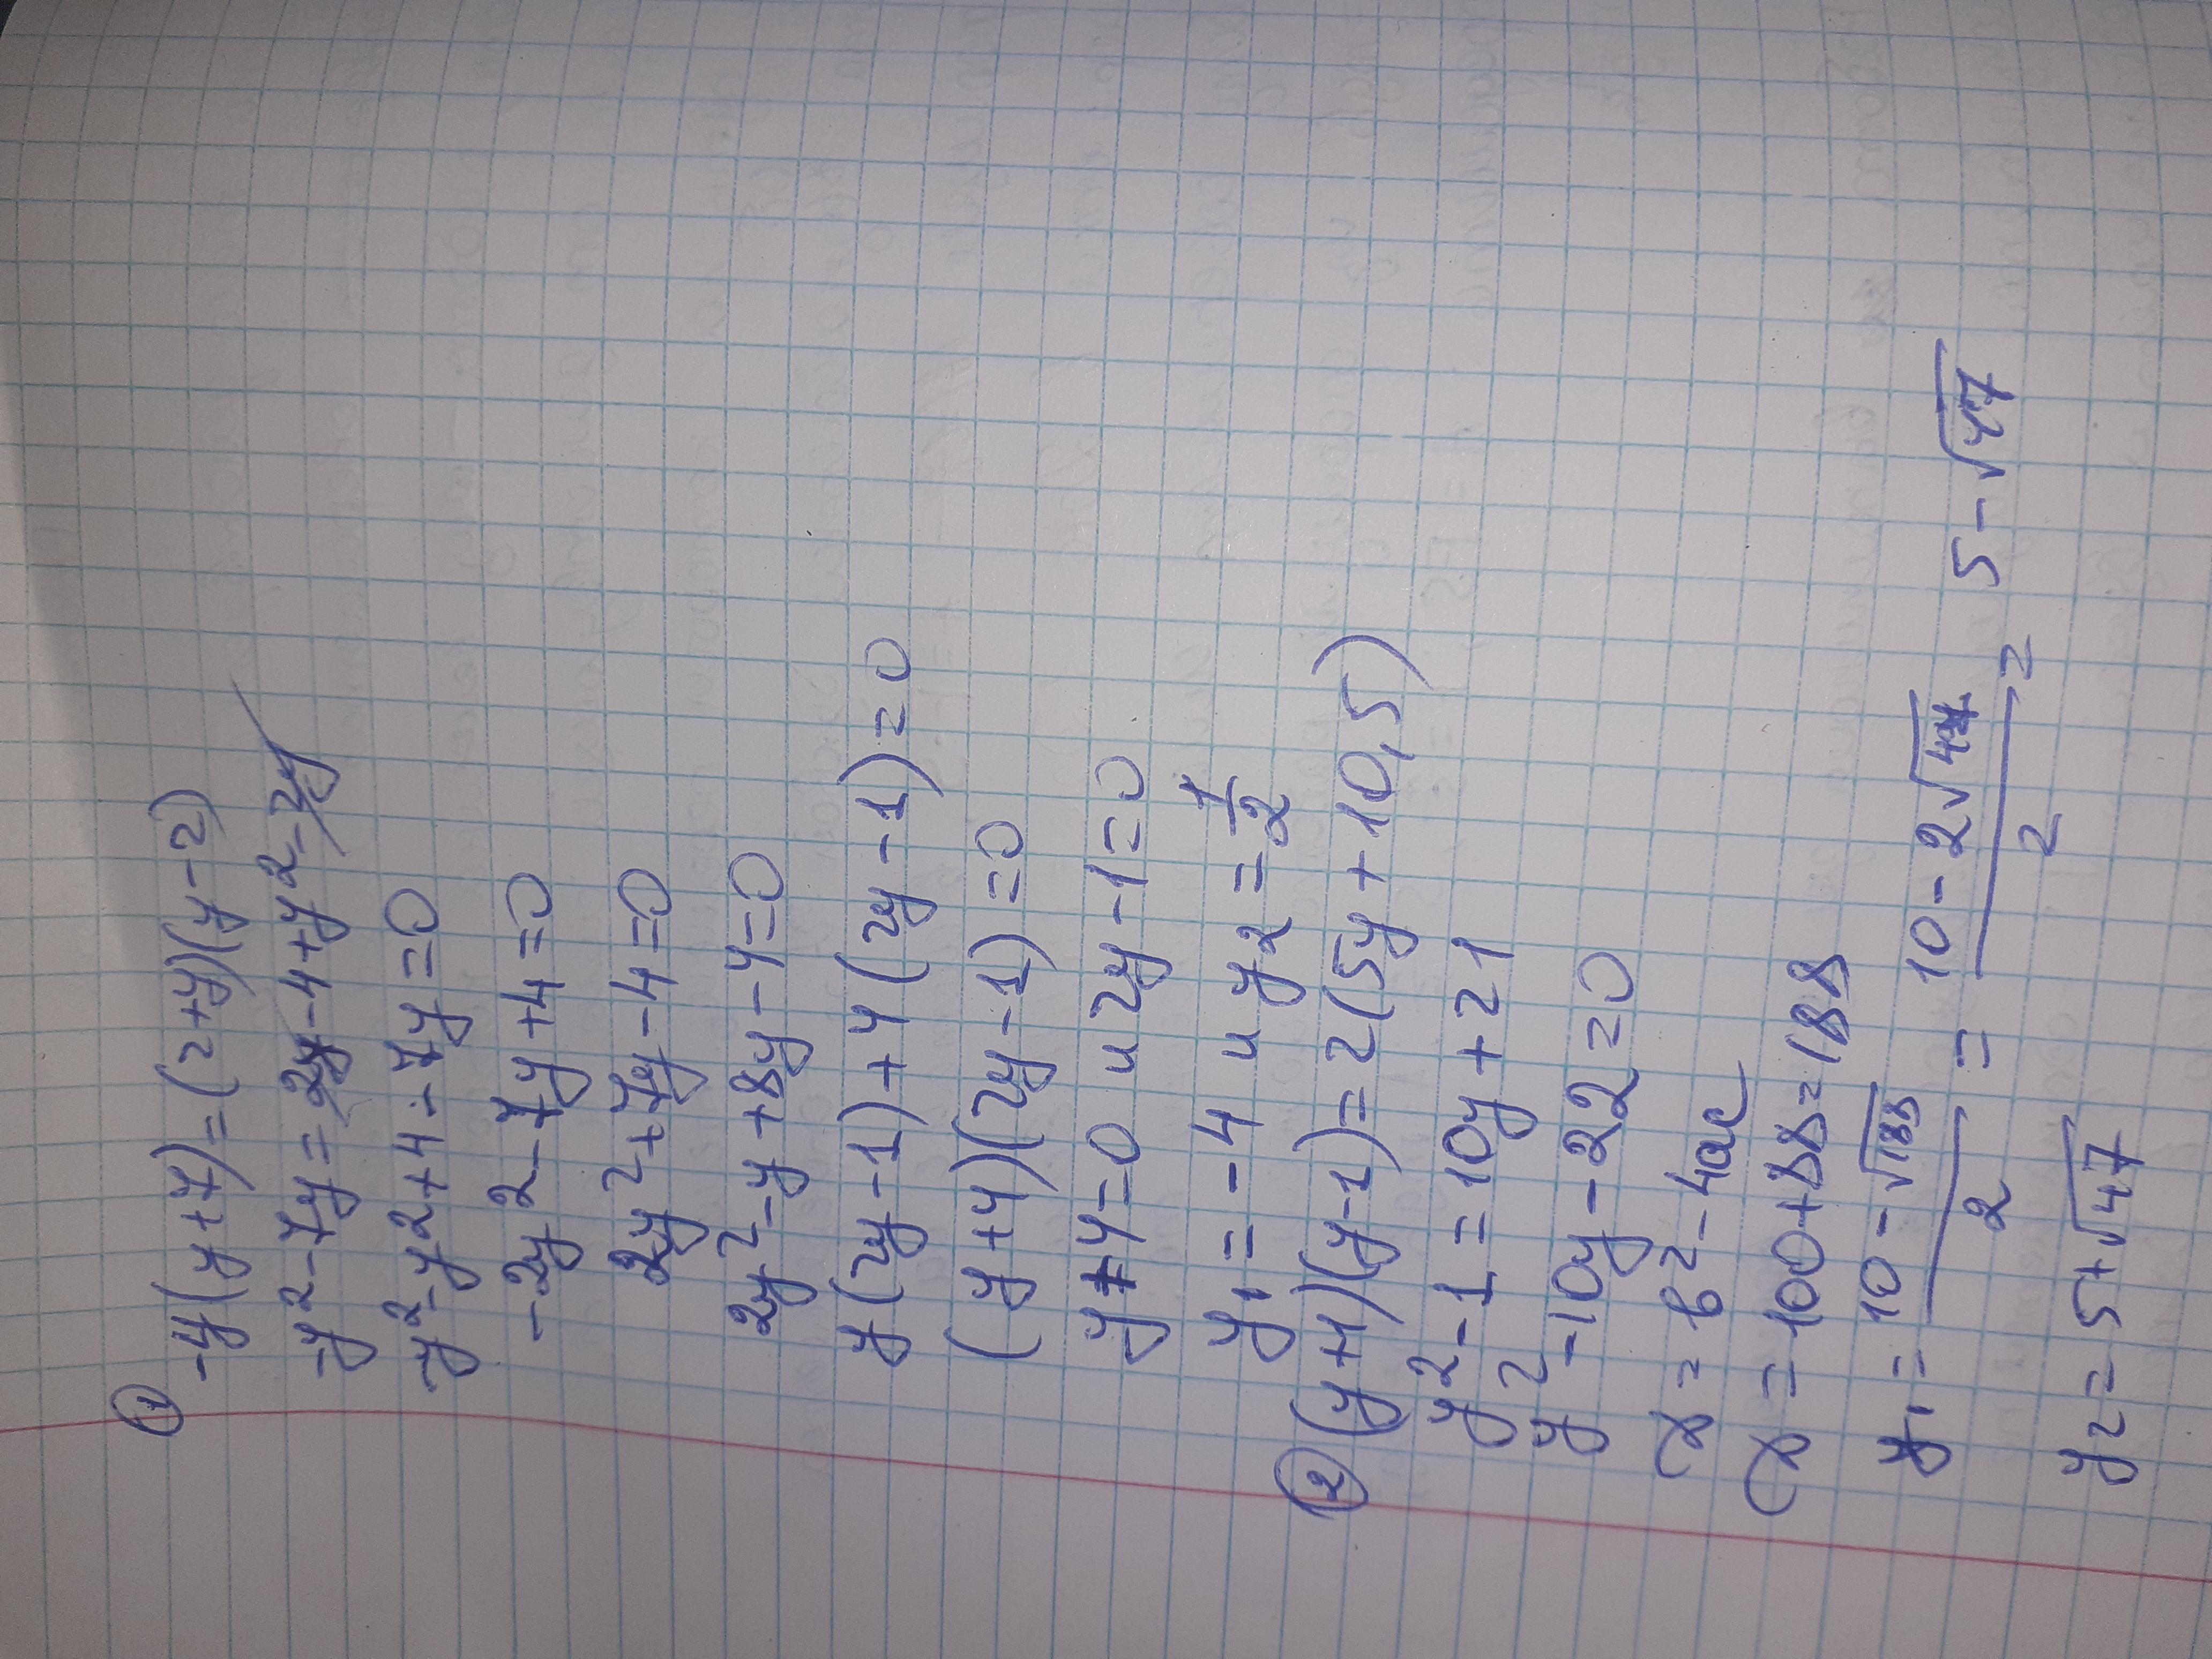 ① -y(y+7)=(2+y)(y-2)
-y²-7y=2y-4+y²-2y
-y²-y²+4-7y=0
-2y²-7y+4=0
2y²+7y-4=0
2y²-y+8y-4=0
y(2y-1)+4(2y-1)=0
(y+4)(2y-1)=0
y+4=0 и 2y-1=0
y₁=-4 и y₂=1/2
② (y+1)(y-1)=2(5y+10,5)
y²-1=10y+21
y²-10y-22=0
D=b²-4ac
D=100+88=188
y₁=(10-√188)/2=(10-2√47)/2=5-√47
y₂=5+√47